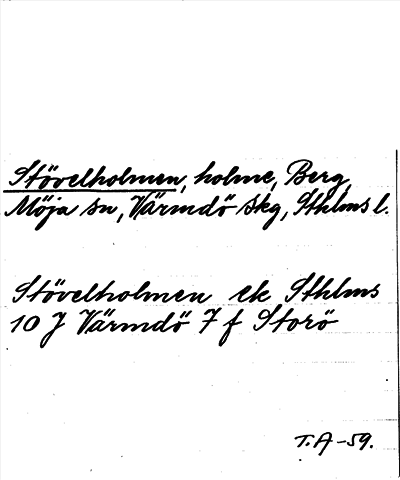 Stövelholmen, holme, Berg,
Möja sn, Värmdö skg, Sthlms l.
Stövelholmen ek Sthlms
10 J Värmdö 7 f Storö
T.A -59.